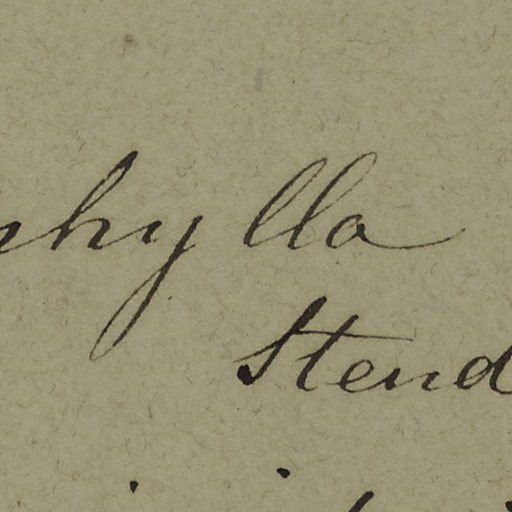 phylla
Stend